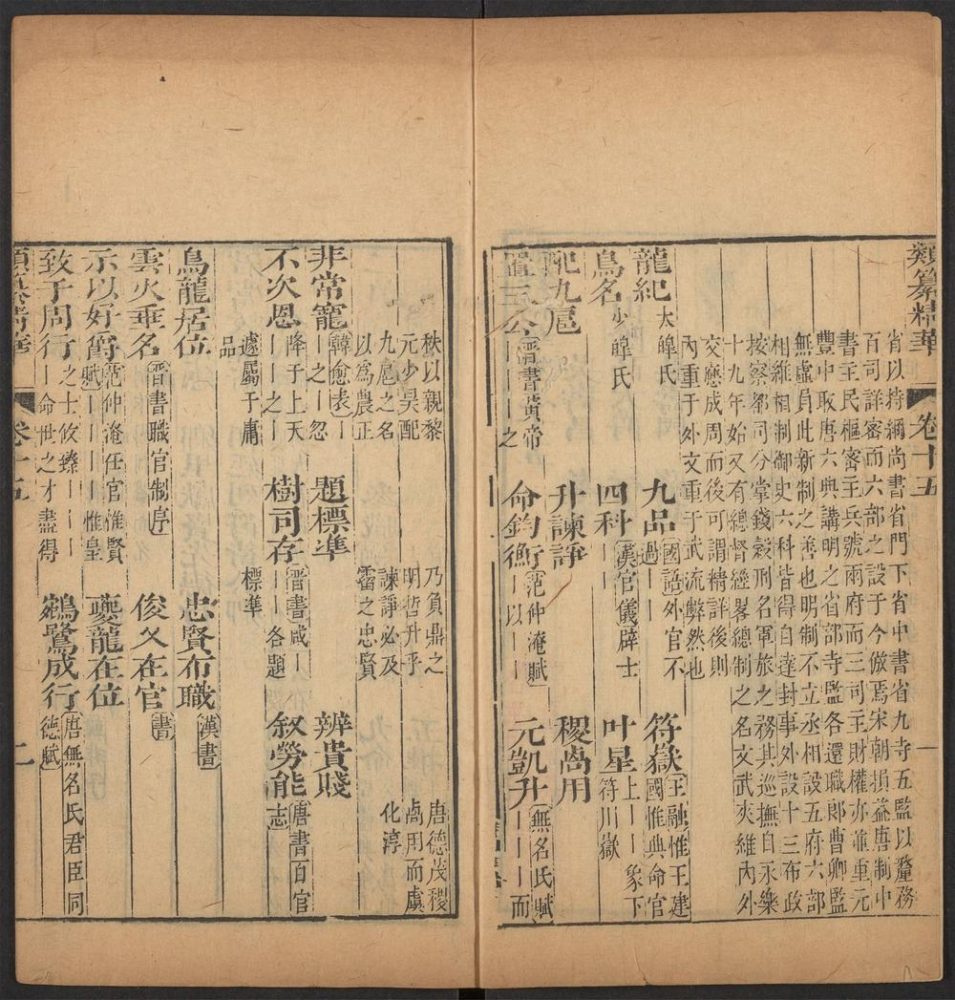 類纂精華
卷十五
一
省以持綱尚書省門下省中書省九寺五監以釐務
百司詳密而六部之設于今倣焉宋朝損益唐制中
書主民樞密主兵號兩府而三司主財權亦並重元
豐中取唐六典講明之省部寺監各還職郎曹卿監
無虛員此新制之善也明制不立丞相設五府六部
相維相制御史六科皆得自達封事外設十三布政
按察都司分掌錢穀刑名軍旅之務其巡撫自永樂
十九年始又有總督經畧總制之名文武夾維內外
交應成周而後可謂精詳後則
內重于外文重于武流弊然也
龍紀太皞氏
九品國語外官不過丨丨
符嶽王融惟王建國惟典命官
鳥名少皞氏
四科漢官儀辟士
叶星上丨丨象下符川嶽
配九扈
升諫諍
稷卨用
置三公晉書黃帝丨丨之
命鈞衡范仲淹賦丨以丨丨
元凱升無名氏賦丨丨丨而
秩以親黎
元少昊配
九扈之名
以為農正
乃負鼎之
明哲升乎
諫諍必及
霤之忠賢
唐德茂稷
卨用而虞
化淳
非常寵韓愈表丨丨之丨忽
題標準
辨貴賤
不次恩降于上天丨丨之丨
遽屬于庸品
樹司存晉書咸丨丨各題標準
叙勞能唐書百官志
鳥龍居位
忠賢布職漢書
雲火垂名晉書職官制序
俊乂在官書
示以好爵范仲淹任官惟賢賦丨丨丨丨惟皇
夔龍在位
致于周行之士攸臻丨丨丨丨命世之才盡得
鵷鷺成行唐無名氏君臣同德賦
類纂精華
卷十五
二